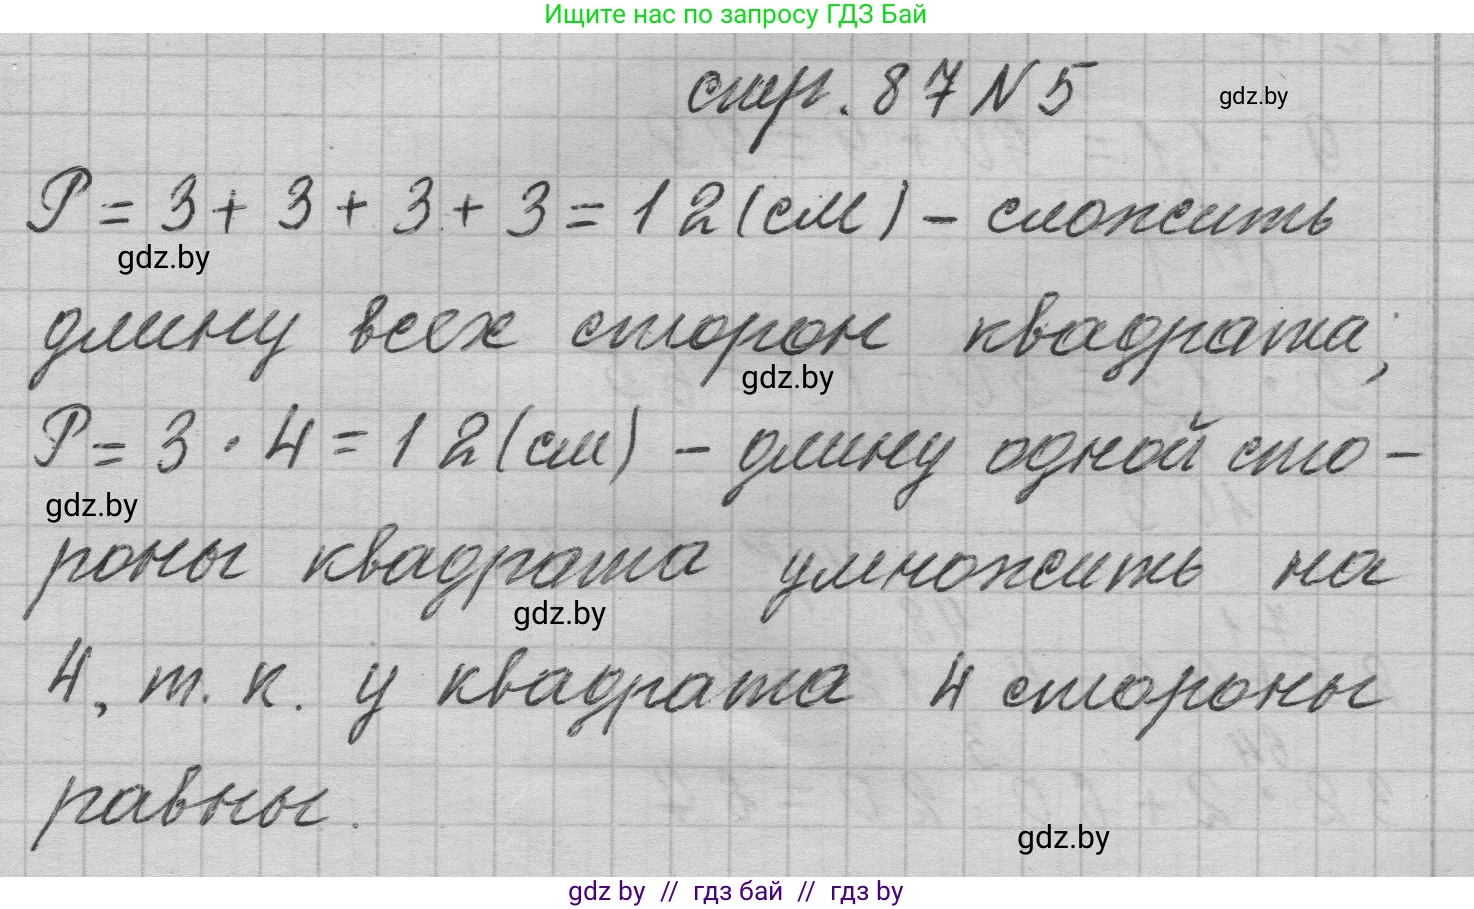 Ищите нас по запросу ГДЗ Бай
стр. 87 N 5
gdz.by
P = 3 + 3 + 3 + 3 = 12 (см) – сложить
gdz.by
длину всех сторон квадрата;
gdz.by
P = 3 · 4 = 12 (см) – длину одной сто-
gdz.by
роны квадрата умножить на
gdz.by
4, т. к. у квадрата 4 стороны
равны.
gdz.by
gdz by // гдз бай // гдз by